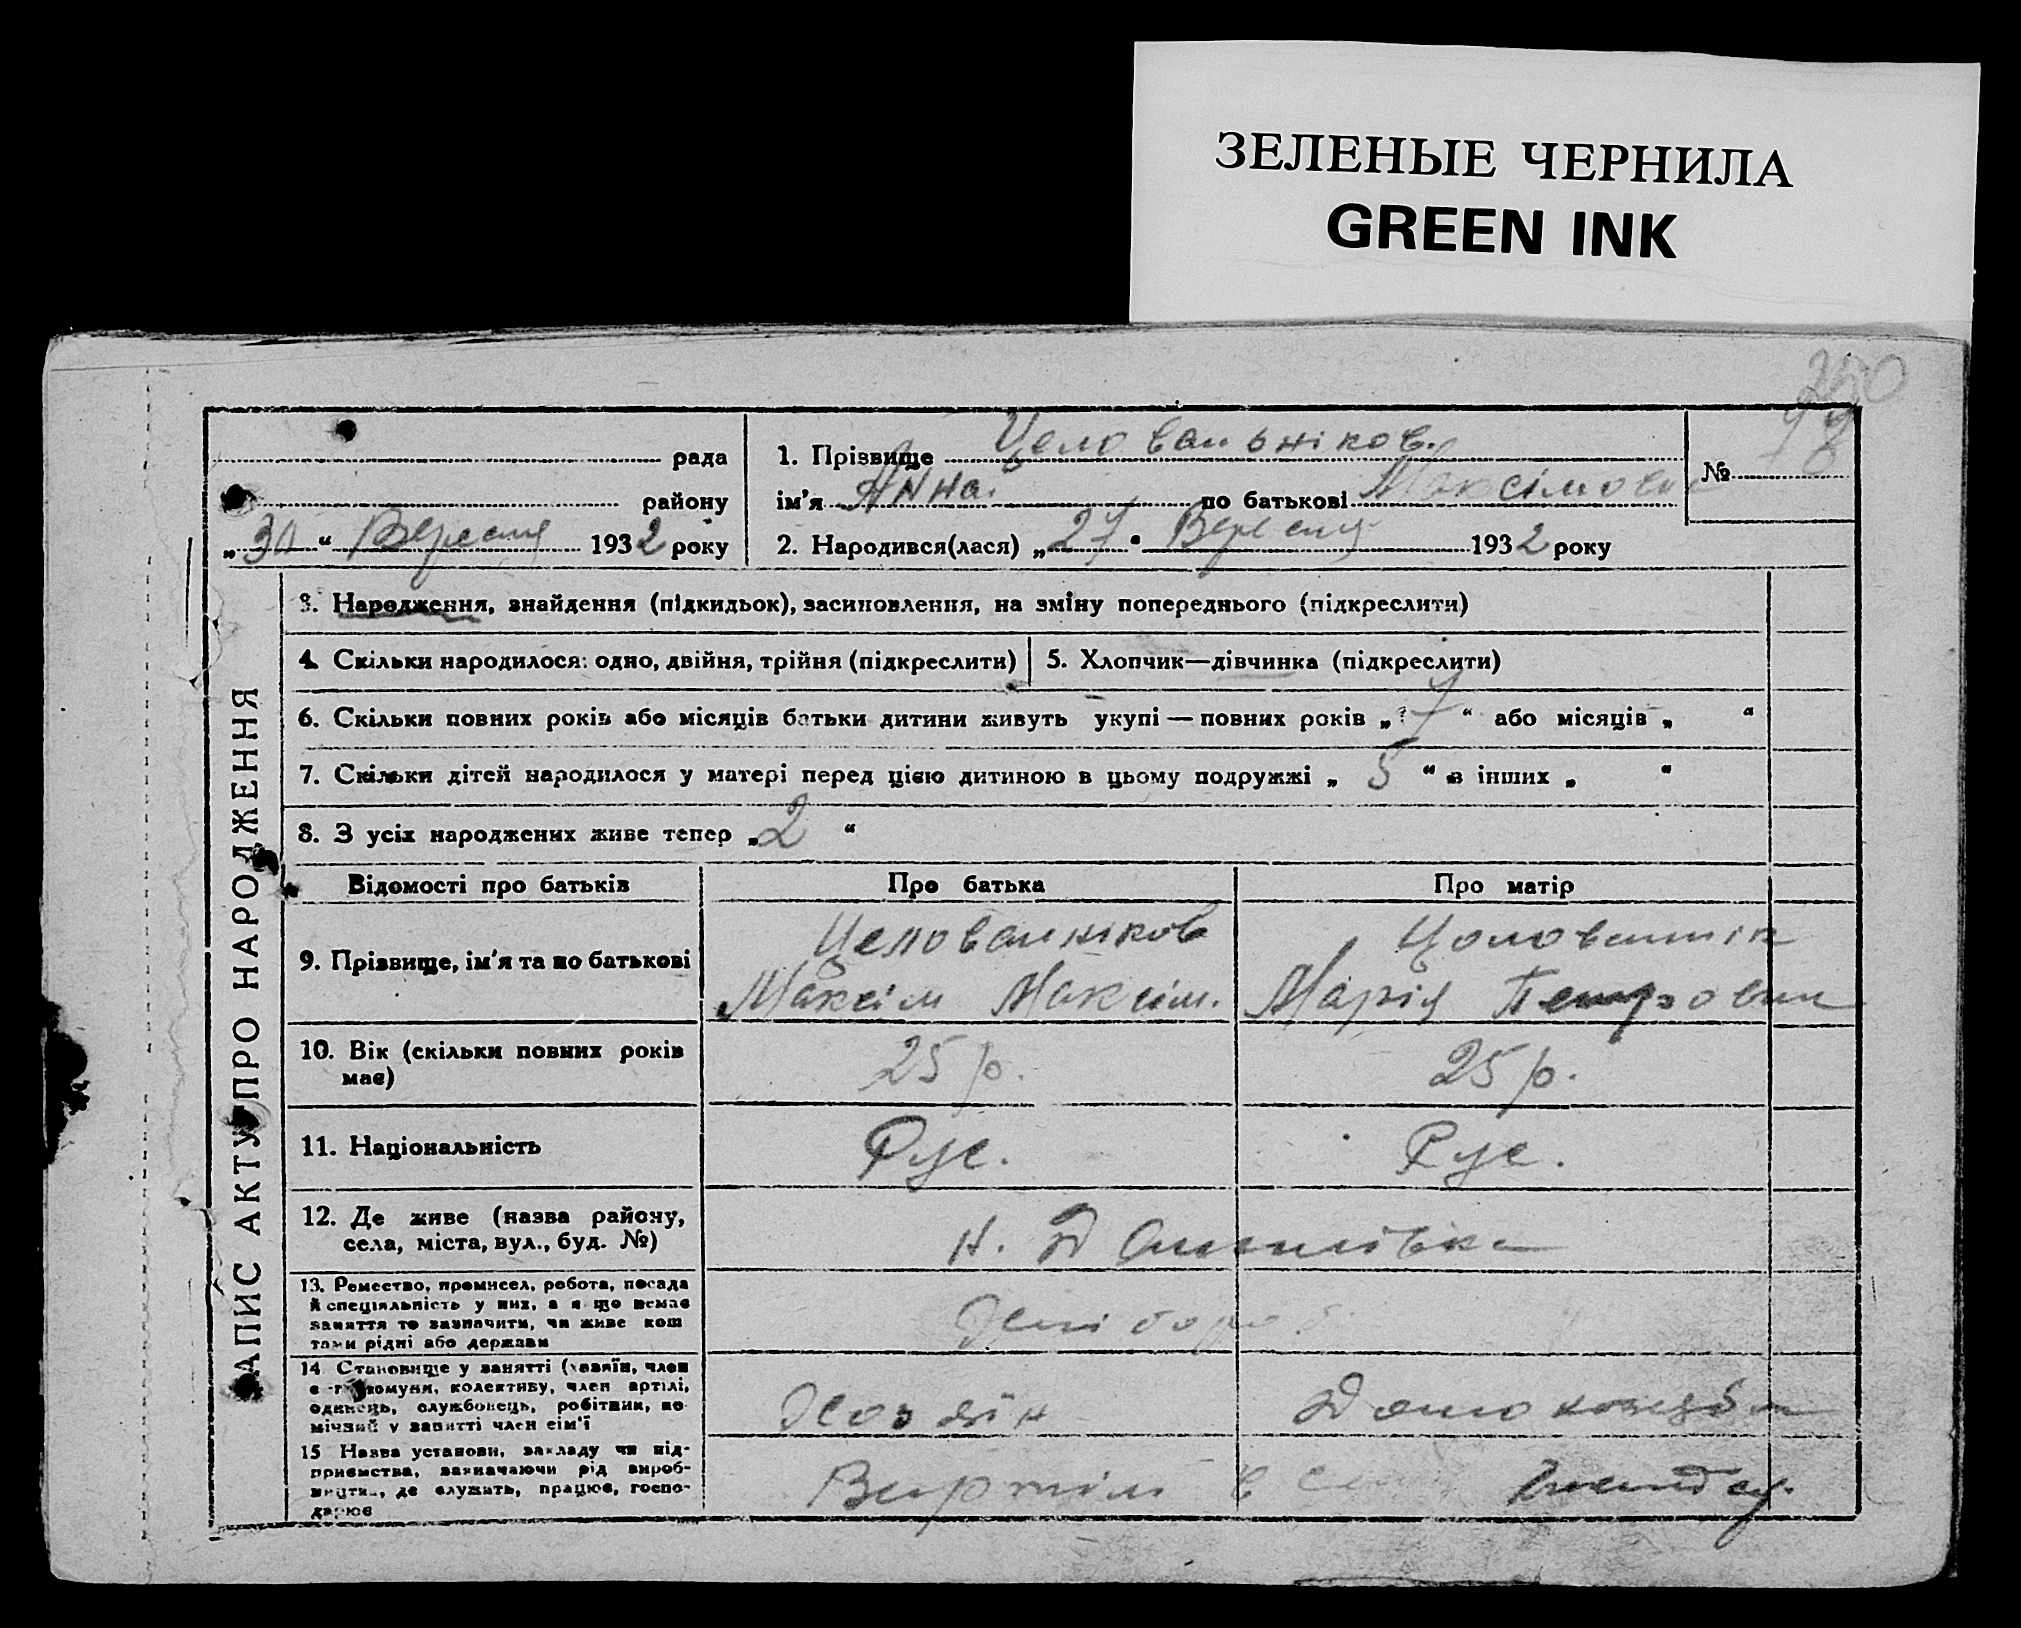 ЗЕЛЕНЫЕ ЧЕРНИЛА
GREEN INK
250
98
рада
району
„30“ Вересня 1932 року
1. Прізвище Целовальніков.
ім’я Анна. по батькові Максімовн
2. Народився(лася) „27“ Вересня 1932 року
№
ЗАПИС АКТУ ПРО НАРОДЖЕННЯ
3. Народження, знайдення (підкидьок), засиновлення, на зміну попереднього (підкреслити)
4. Скільки народилося: одно, двійня, трійня (підкреслити)
5. Хлопчик—дівчинка (підкреслити)
6. Скільки повних років або місяців батьки дитини живуть укупі — повних років „7“ або місяців „ “
7. Скільки дітей народилося у матері перед цією дитиною в цьому подружжі „5“ в інших „ “
8. З усіх народжених живе тепер „2“
Відомості про батьків Про батька Про матір
9. Прізвище, ім’я та по батькові
Целованніков
Максім Максім.
Марія Петровн
10. Вік (скільки повних років має)
25 р. 25 р.
11. Національність Рус. Рус.
12. Де живе (назва району,
села, міста, вул., буд. №)
Н. Данилівка
13. Ремество, промисел, робота, посада
й спеціяльність у них, а якщо немає
заняття то зазначити, чи живе кош
тами рідні або держави
Хлібороб
14. Становище у занятті (хазяїн, член
с-г комуни, колективу, член артілі,
одинець, службовець, робітник, по
мічний у занятті член сім’ї
Хозяїн
15 Назва установи, закладу чи під-
приємства, зазначаючи рід вироб-
ництва, де служить, працює, госпо-
дарює